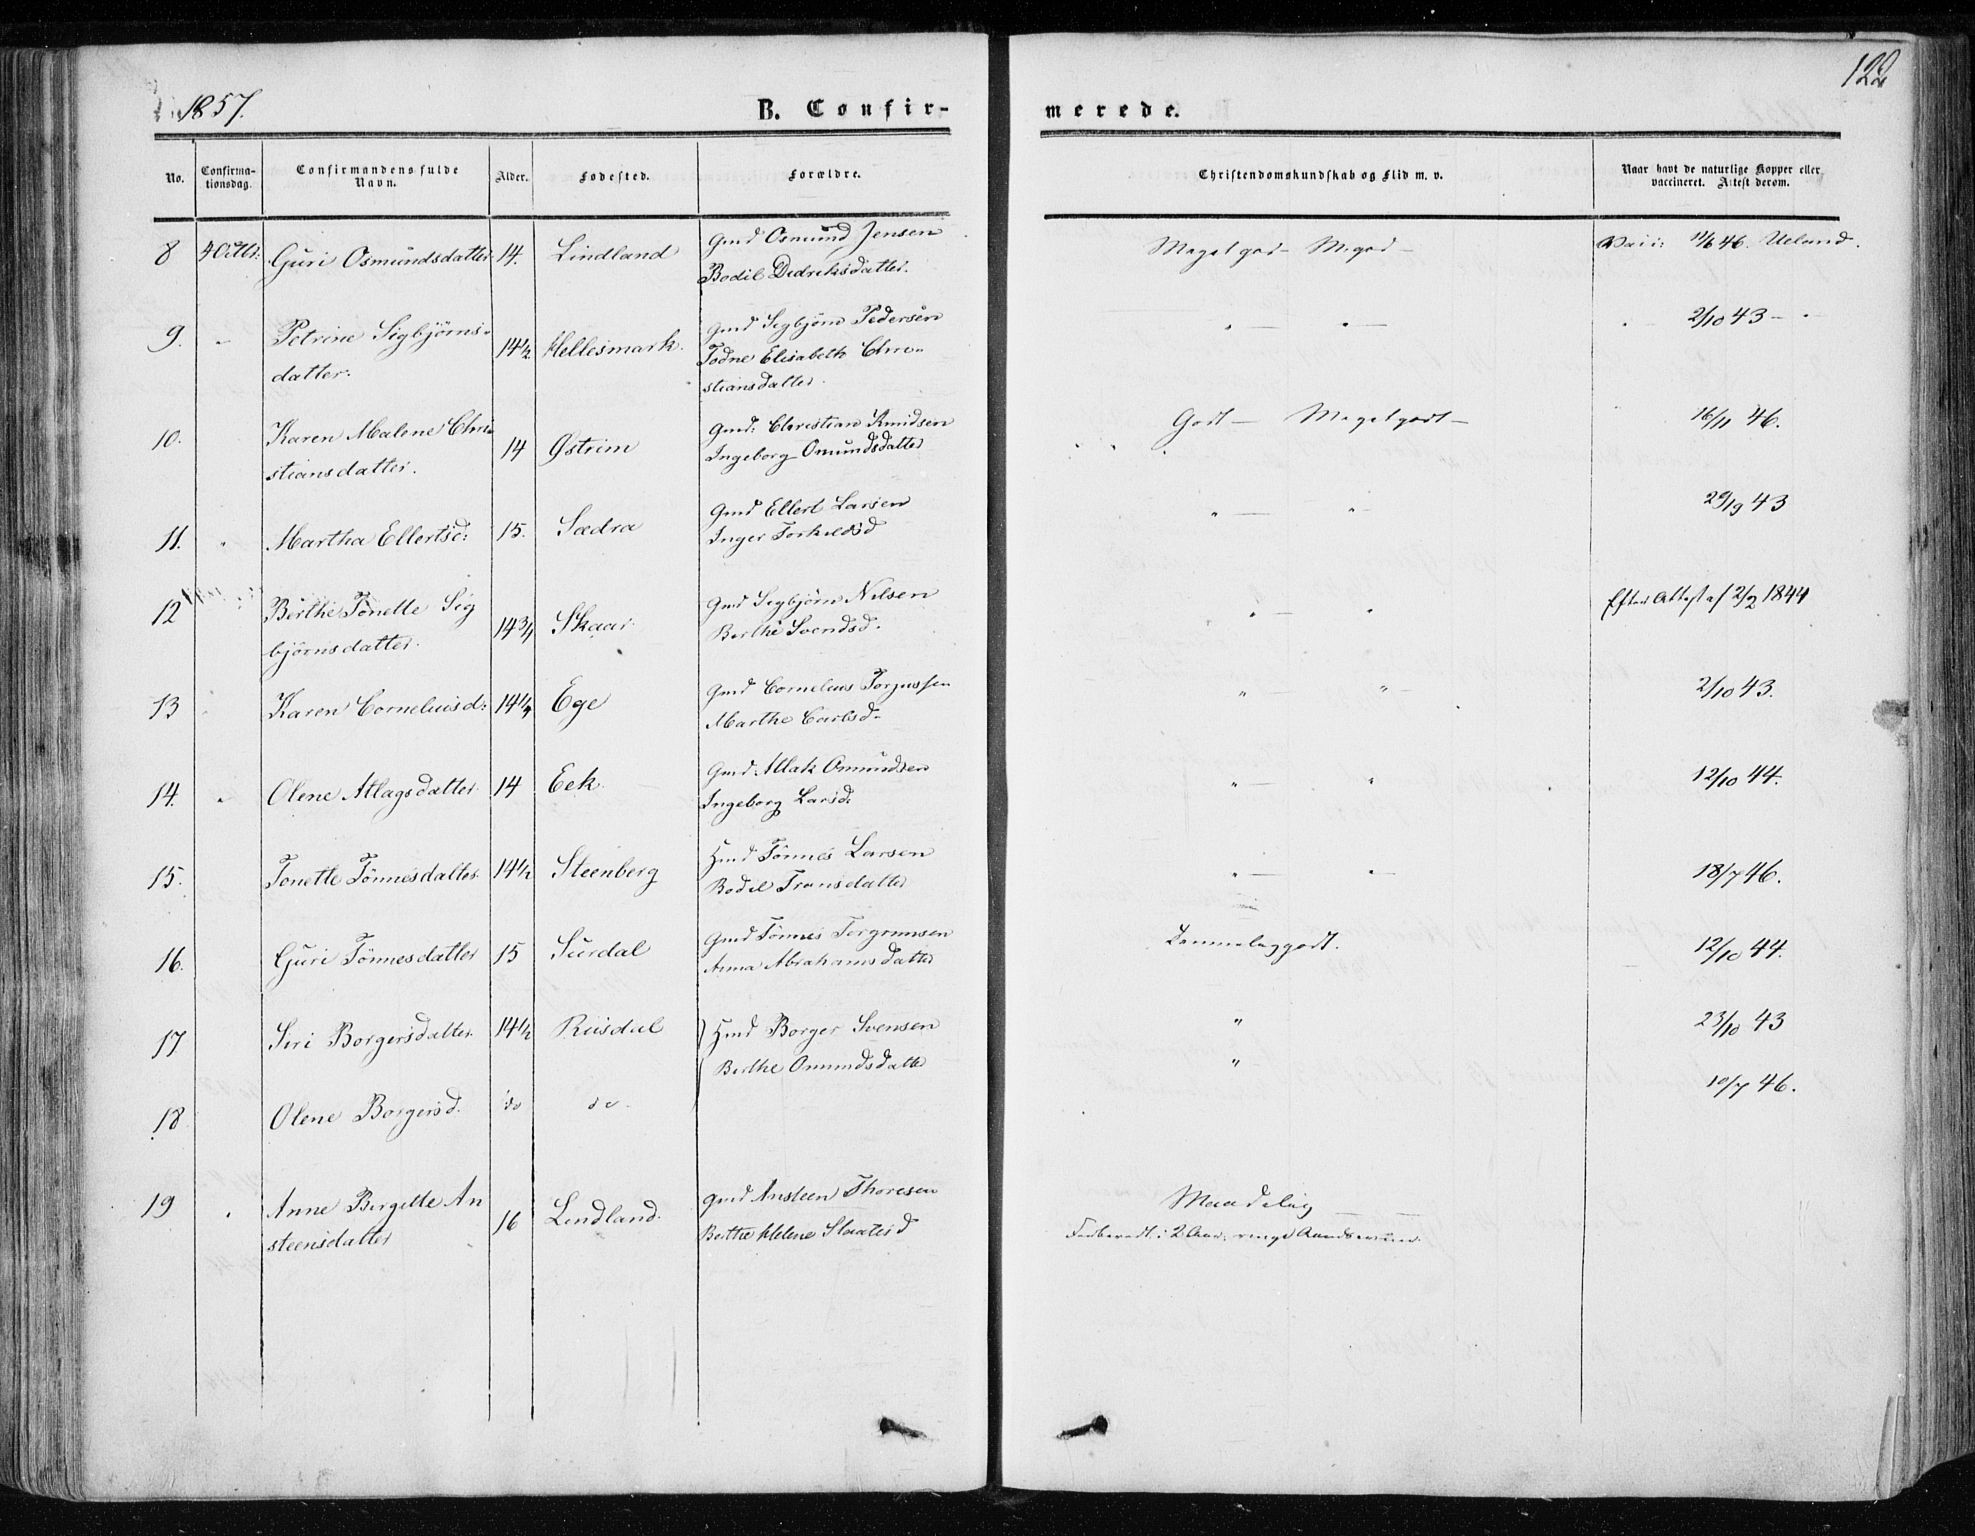 1857.
B. Confir-
merede.
No.
Confirma-
tionsdag.
Confirmandens fulde
Navn.
Alder.
Fødested.
Forældre.
Christendomskundskab og Flid m. v.
Naar havt de naturlige Kopper eller
vaccineret. Attest derom.
8 4 Octbr. Guri Osmundsdatter 14. Lindland Gmd Osmund Jensen
Bodil Dedreksdatter.
Megetgod - M. god - 11/6 46. Ueland.
9. - Petrine Sigbjørns-
datter. 14½ Hellesmark. Gmd Sigbjørn Pedersen
Todne Elisabeth Chri-
stiansdatter.
" - " - 2/10 43 - "
10. Karen Malene Chri-
stiansdatter. 14 Østrem Gmd: Christian Knudsen
Ingeborg Omundsdatter
Godt - Megetgodt - 16/11 46.
11. " Martha Ellertsd: 15. Sædra Gmd Ellert Larsen
Inger Torkildsd
" - " - 43
12 Berthe Tonette Sig
bjørnsdatter. 14¾ Skaar Gmd Sigbjørn Nilsen
Berthe Svendsd.
" - " Efter Attest af 2/2 1844
13 Karen Corneliusd: 14¼ Ege Gmd Cornelius Torjussen
Marthe Carlsd.
" - " - 2/10 43.
14. " Olene Atlagsdatter 14 Eek. Gmd. Atlak Omundsen
Ingeborg Larsd:
" - " 12/10 44.
15. Tonette Tønnesdatter 14½ Steenberg Hmd Tønnes Larsen
Bodil Tronsdatter
" - " - 18/7 46.
16. Guri Tønnesdatter 15 Surdal Gmd Tønnes Torgrimsen
Anna Abrahamsdatter
Temmeliggodt. 12/10 44.
17 Siri Borgersdatter. 14½ Ruisdal Hmd Borger Svensen
Berthe Omundsdatter
" 23/10 43
18 Olene Borgersd. do do.
" 10/7 46.
19 " Anne Birgitte An
steensdatter 16 Lindland. Gmd Ansteen Thoresen
Berthe Helene
Maadelig